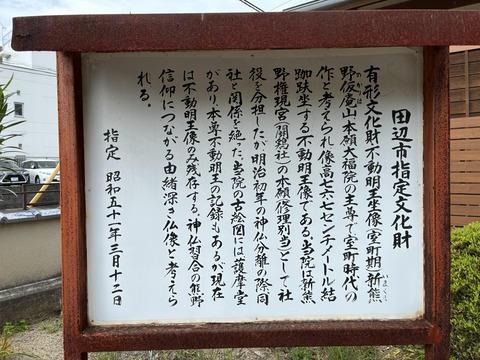 田辺市指定文化財
有形文化財不動明王坐像(室町期)新熊
野仮庵山本願大福院の主尊で室町時代の
作と考えられ像高七六・七センチメートル結
跏趺坐する不動明王像である。当院は新熊
野権現宮(闘鶏社)の本願(修理別当)として社
役を分担したが明治初年の神仏分離の際同
社と関係を絶った。当院の古絵図には護摩堂
があり、本尊不動明王の記録もあるが現在
は不動明王像のみ残存する。神仏習合の熊野
信仰につながる由緒深き仏像と考えら
れる。
指定 昭和五十一年三月十二日